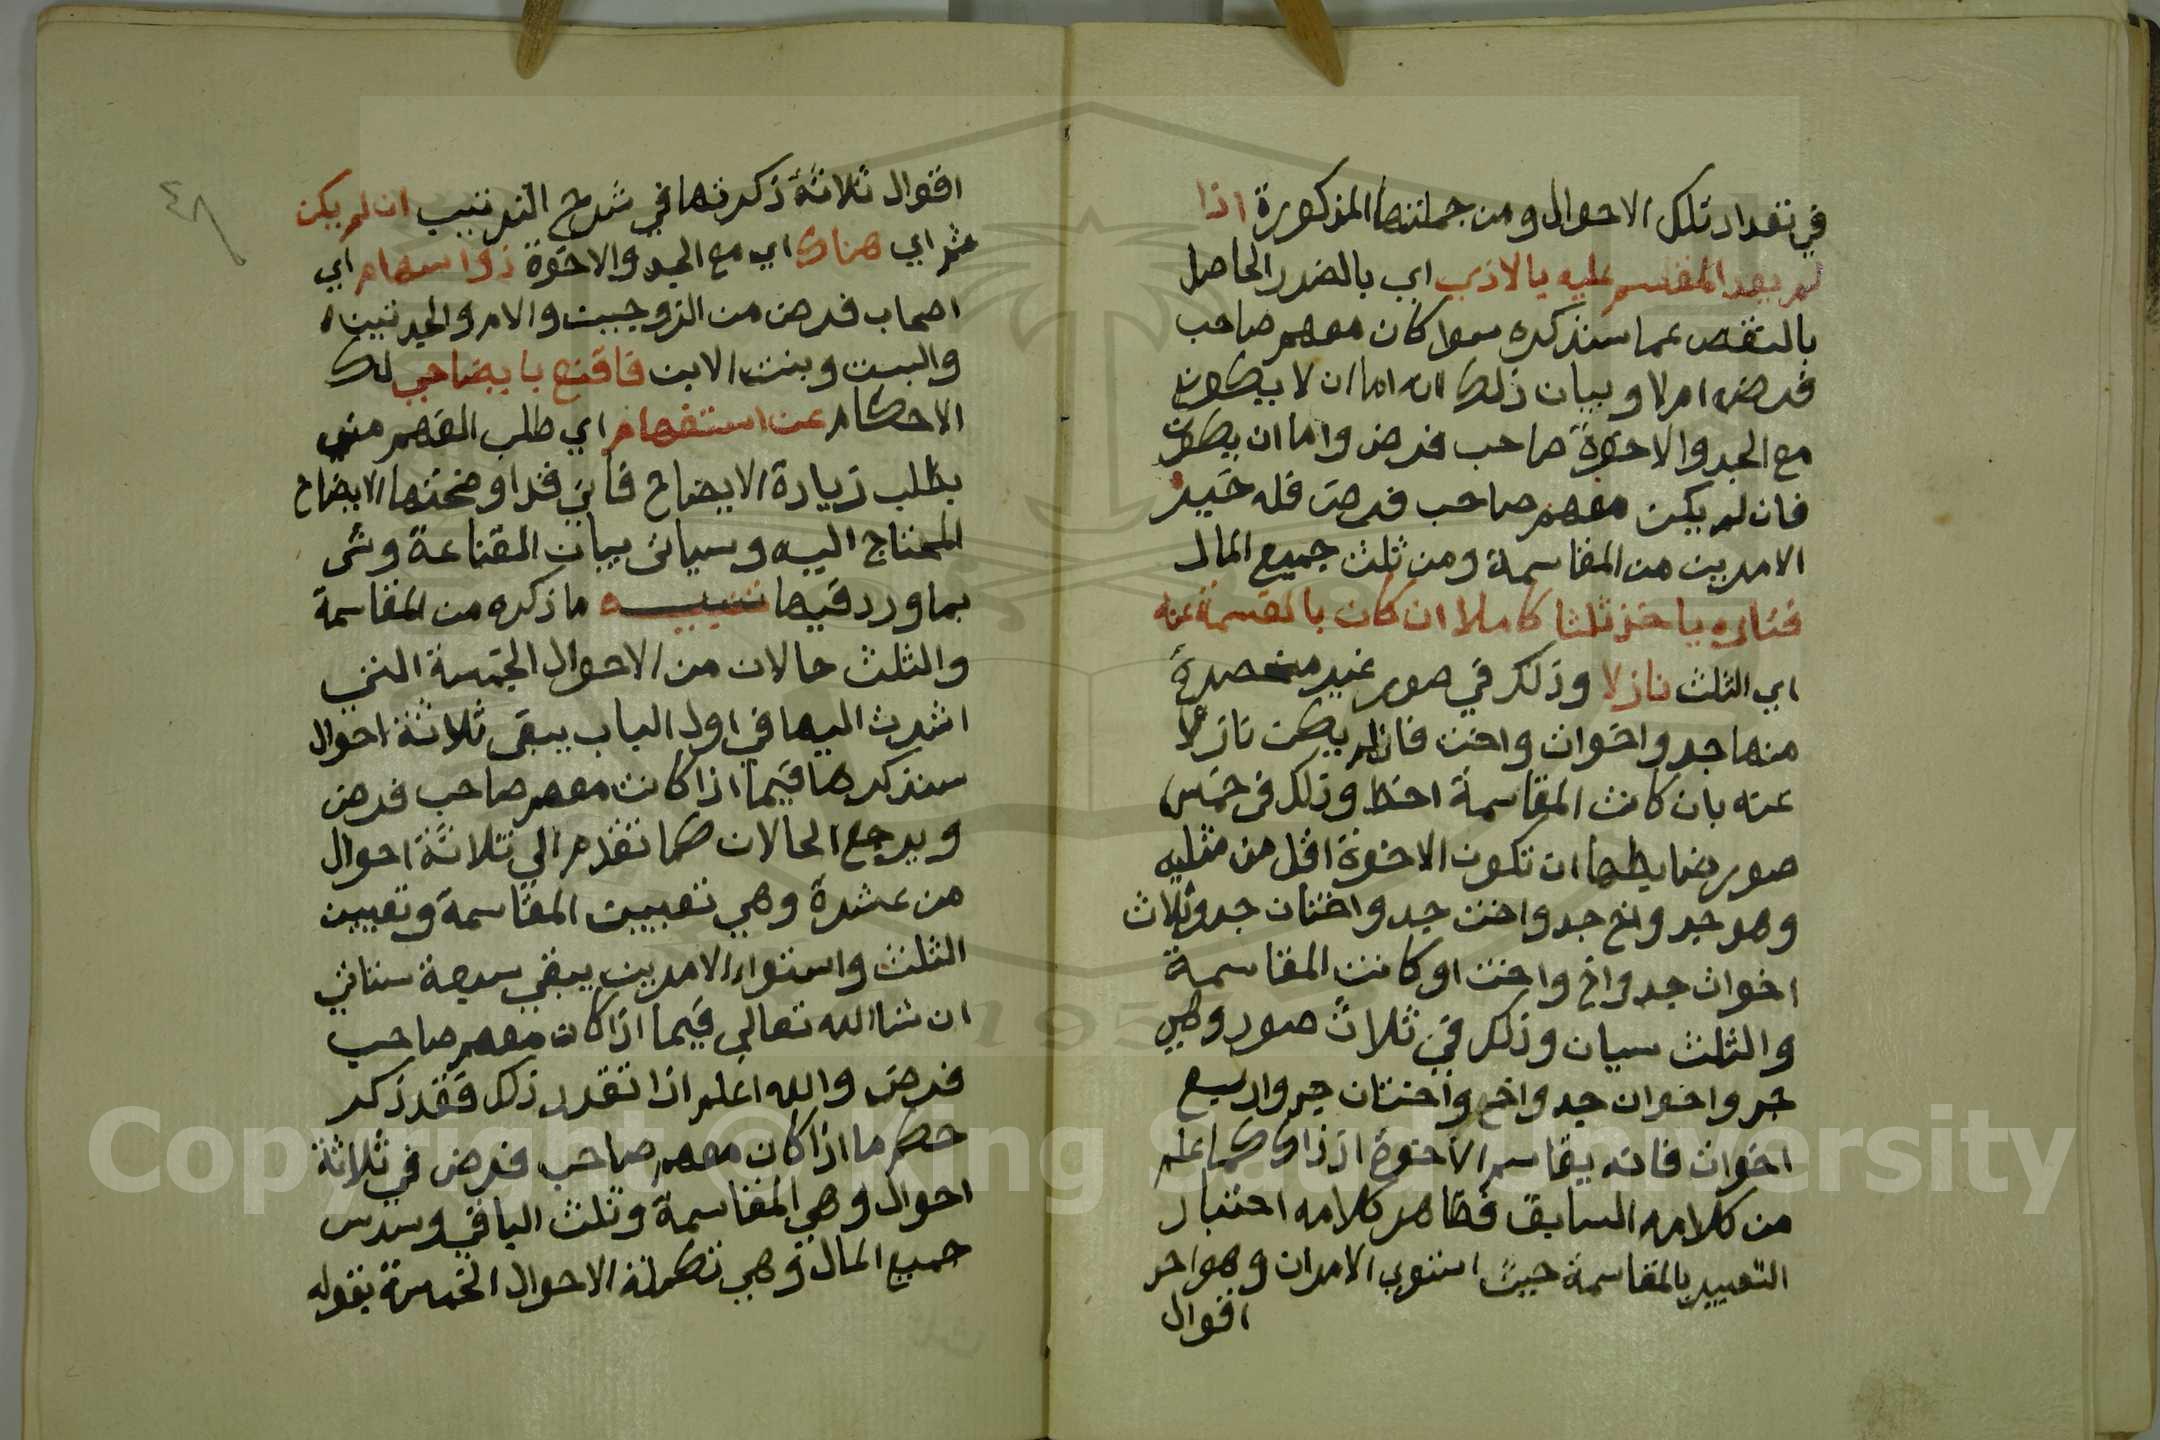 في تعداد تلك الاحوال ومن جملتها المذكورة اذا
لم يعد المقسم عليه بالاذى اي بالضرر الحاصل
بالنقص عما سنذكره سوا كان معهم صاحب
فرض ام لا وبيان ذلك انه اما ان لا يكون
مع الجد والاخوة صاحب فرض واما ان يكون
فان لم يكن معهم صاحب فرض فله خير
الامرين من المقاسمة ومن ثلث جميع المال
فتارة ياخذ ثلثا كاملا ان كان بالقسمة عنه
اي الثلث نازلا وذلك في صور غير منحصرة
منها جد واخوان واخت فان لم يكن نازلا
عنه بان كانت المقاسمة احظ وذلك في خمس
صور ضابطها ان تكون الاخوة اقل من مثليه
وهو جد واخ جد واخت جد واختان جد وثلاث
اخوات جد واخ واخت او كانت المقاسمة
والثلث سيان وذلك في ثلاث صور وهي
جد واخوان جد واخ واختان جد واربع
اخوات فانه يقاسم الاخوة اذ ذاك كما علم
من كلامه السابق فظاهر كلامه اختيار
التعبير بالمقاسمة حيث استوى الامران وهو احد
اقوال
٤٨
اقوال ثلاثة ذكرتها في شرح الترتيب ان لم يكن
ثم اي هناك اي مع الجد والاخوة ذوا سهام اي
اصحاب فرض من الزوجين والام والجدتين
والبنت وبنت الابن فاقنع بايضاحي لك
الاحكام عن استفهام اي طلب الفهم مني
بطلب زيادة الايضاح فاني قد اوضحتها الايضاح
المحتاج اليه وسياتي بيان القناعة وشي
بما ورد فيها تنبيه ما ذكره من المقاسمة
والثلث حالان من الاحوال الخمسة التي
اشرت اليها في اول الباب يبقى ثلاثة احوال
سنذكرها فيما اذا كانت معهم صاحب فرض
ويرجع الحالان كما تقدم الي ثلاثة احوال
من عشرة وهي تعيين المقاسمة وتعيين
الثلث واستواء الامرين يبقي سبعة ستاتي
ان شا الله تعالى فيما اذا كان معهم صاحب
فرض والله اعلم اذا تقرر ذلك فقد ذكر
حكم ما اذا كان معهم صاحب فرض في ثلاثة
احوال وهي المقاسمة وثلث الباقي وسدس
جميع المال وهي تكملة الاحوال الخمسة بقوله
Copyright © King Saud University